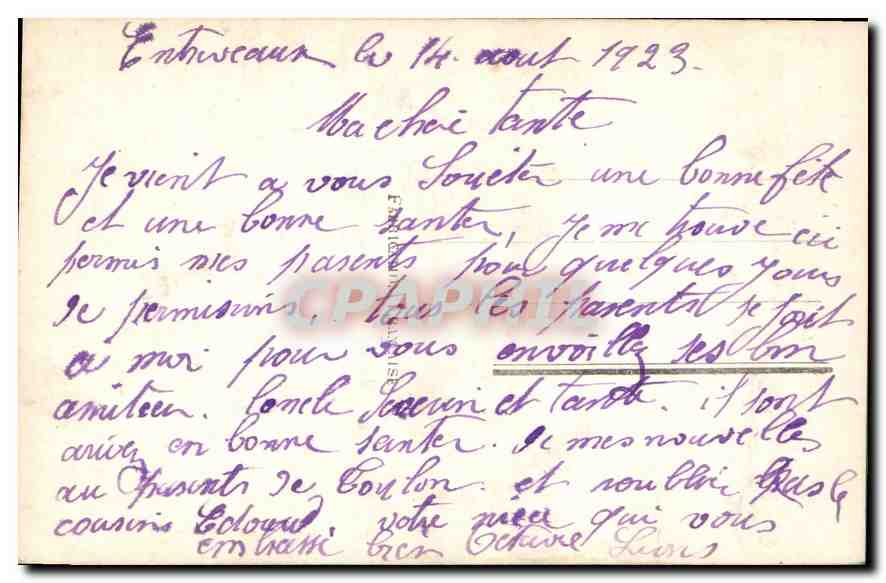 Entrevaux le 14 aout 1923.
Ma cheré tante
Je vient a vous Souéter une bonne fête
et une bonne santer, Je me trouve ici
permis mes parents pour quelques Jours
de permisions. tous les parents se Joit
a moi pour vous envoillez ses bon
amiteer. loncle Severin et tante. il sont
arivez en bonne santer. de mes nouvelles
au parents de Toulon. et roublier pas le
cousins Edouard. votre niece qui vous
embrasse bien Octavie
CPAPHIL